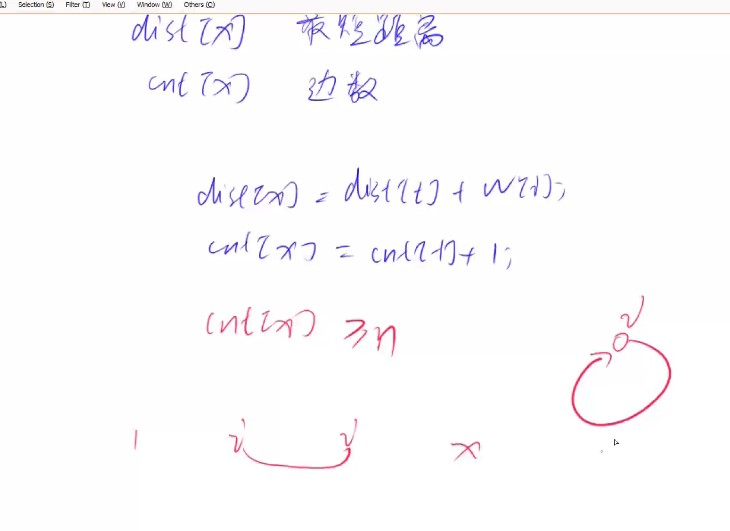 Selection (S) Filter (T) View (V) Window (W) Others (O)
dist[x] 最短距离
cnt[x] 边数
dist[x] = dist[t] + w[i];
cnt[x] = cnt[t] + 1;
cnt[x] ≥ n
i
1 i i x